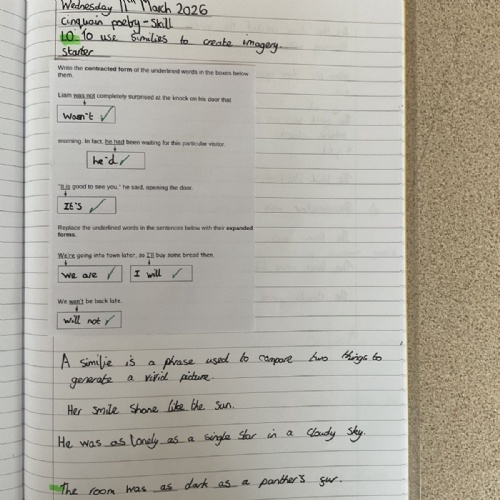 Wednesday 11th March 2026
Cinquain poetry - Skill
LO To use similes to create imagery.
Starter
Write the contracted form of the underlined words in the boxes below
them.
Liam was not completely surprised at the knock on his door that
Wasn't ✓
morning. In fact, he had been waiting for this particular visitor.
he'd ✓
"It is good to see you," he said, opening the door.
It's ✓
Replace the underlined words in the sentences below with their expanded
forms.
We're going into town later, so I'll buy some bread then.
We are ✓ I will ✓
We won't be back late.
Will not ✓
A similie is a phrase used to compare two things to
generate a vivid picture.
Her smile shone like the sun.
He was as lonely as a single star in a cloudy sky.
The room was as dark as a panther's fur.